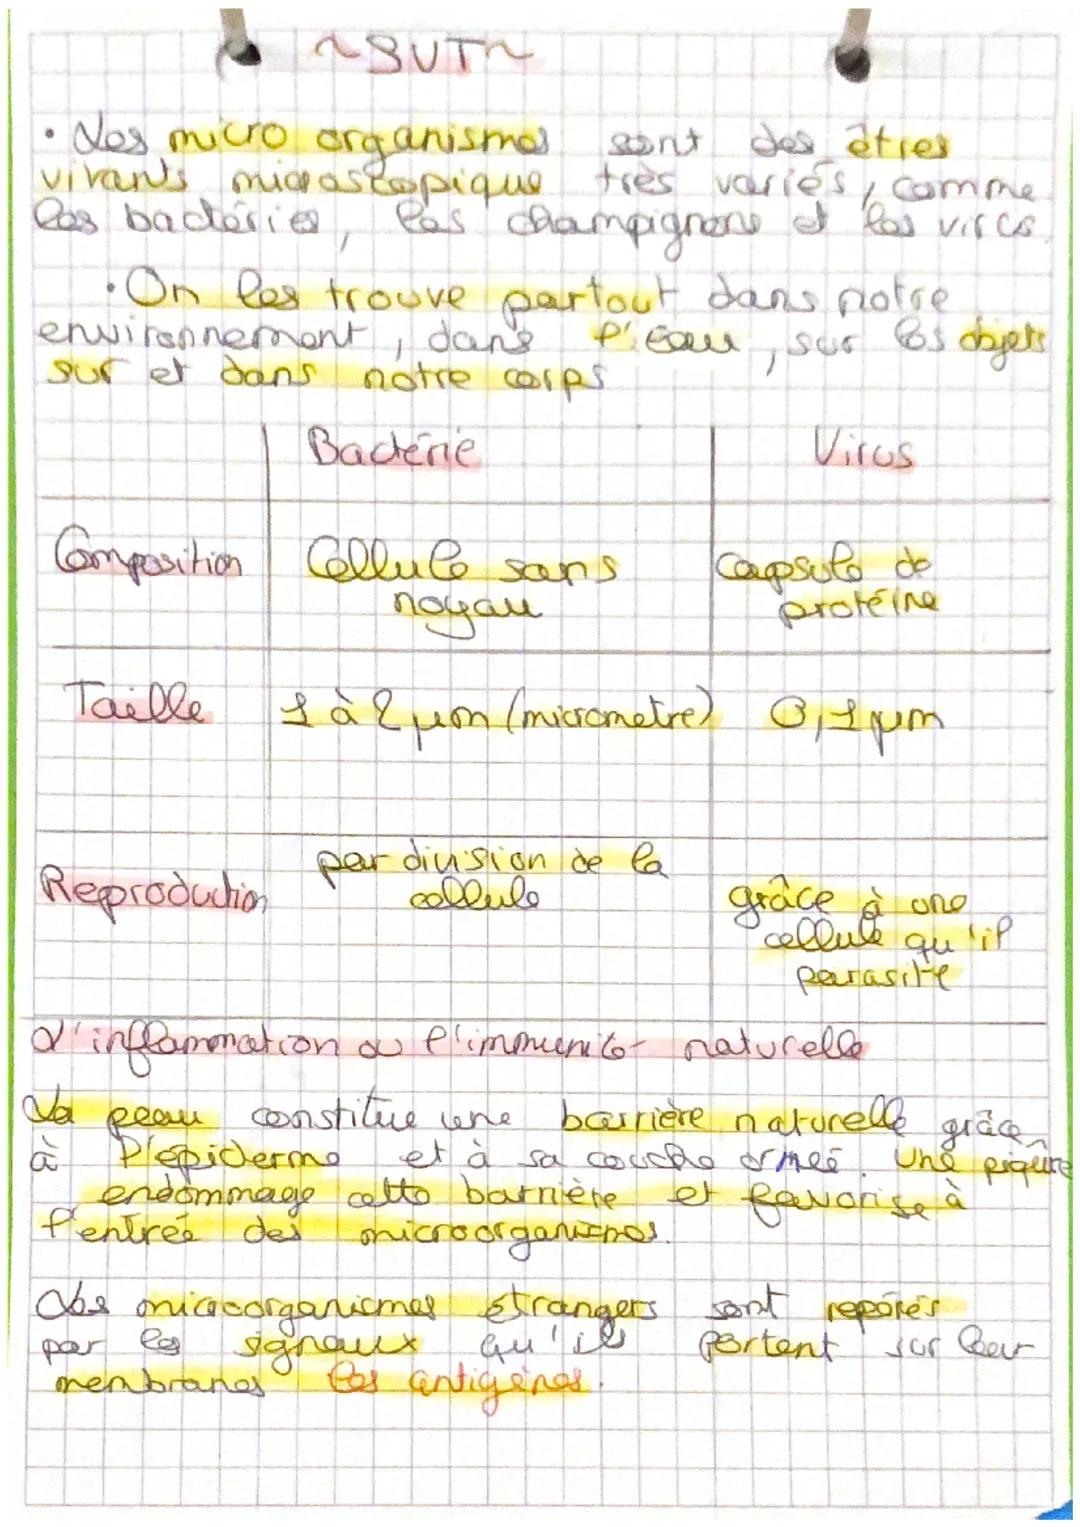 ~SVT~
• Les micro organismes sont des êtres
vivants microscopique très variés, comme
les bactéries, les champignons et les virus.
• On les trouve partout dans notre
environnement, dans l'eau, sur les objets
sur et dans notre corps
Bactérie Virus
Composition Cellule sans noyau capsule de protéine
Taille 1 à 2 µm (micrometre) 0,1 µm
Reproduction par division de la cellule grâce à une cellule qu'il parasite
L'inflammation ou l'immunité naturelle
La peau constitue une barrière naturelle grâce
à l'épiderme et à sa couche ormeé. Une piqure
endommage cette barrière et favorise à
l'entrée des microorganismes.
Les microorganismes étrangers sont repérés
par les signaux qu'ils portent sur leur
membranes les antigènes.